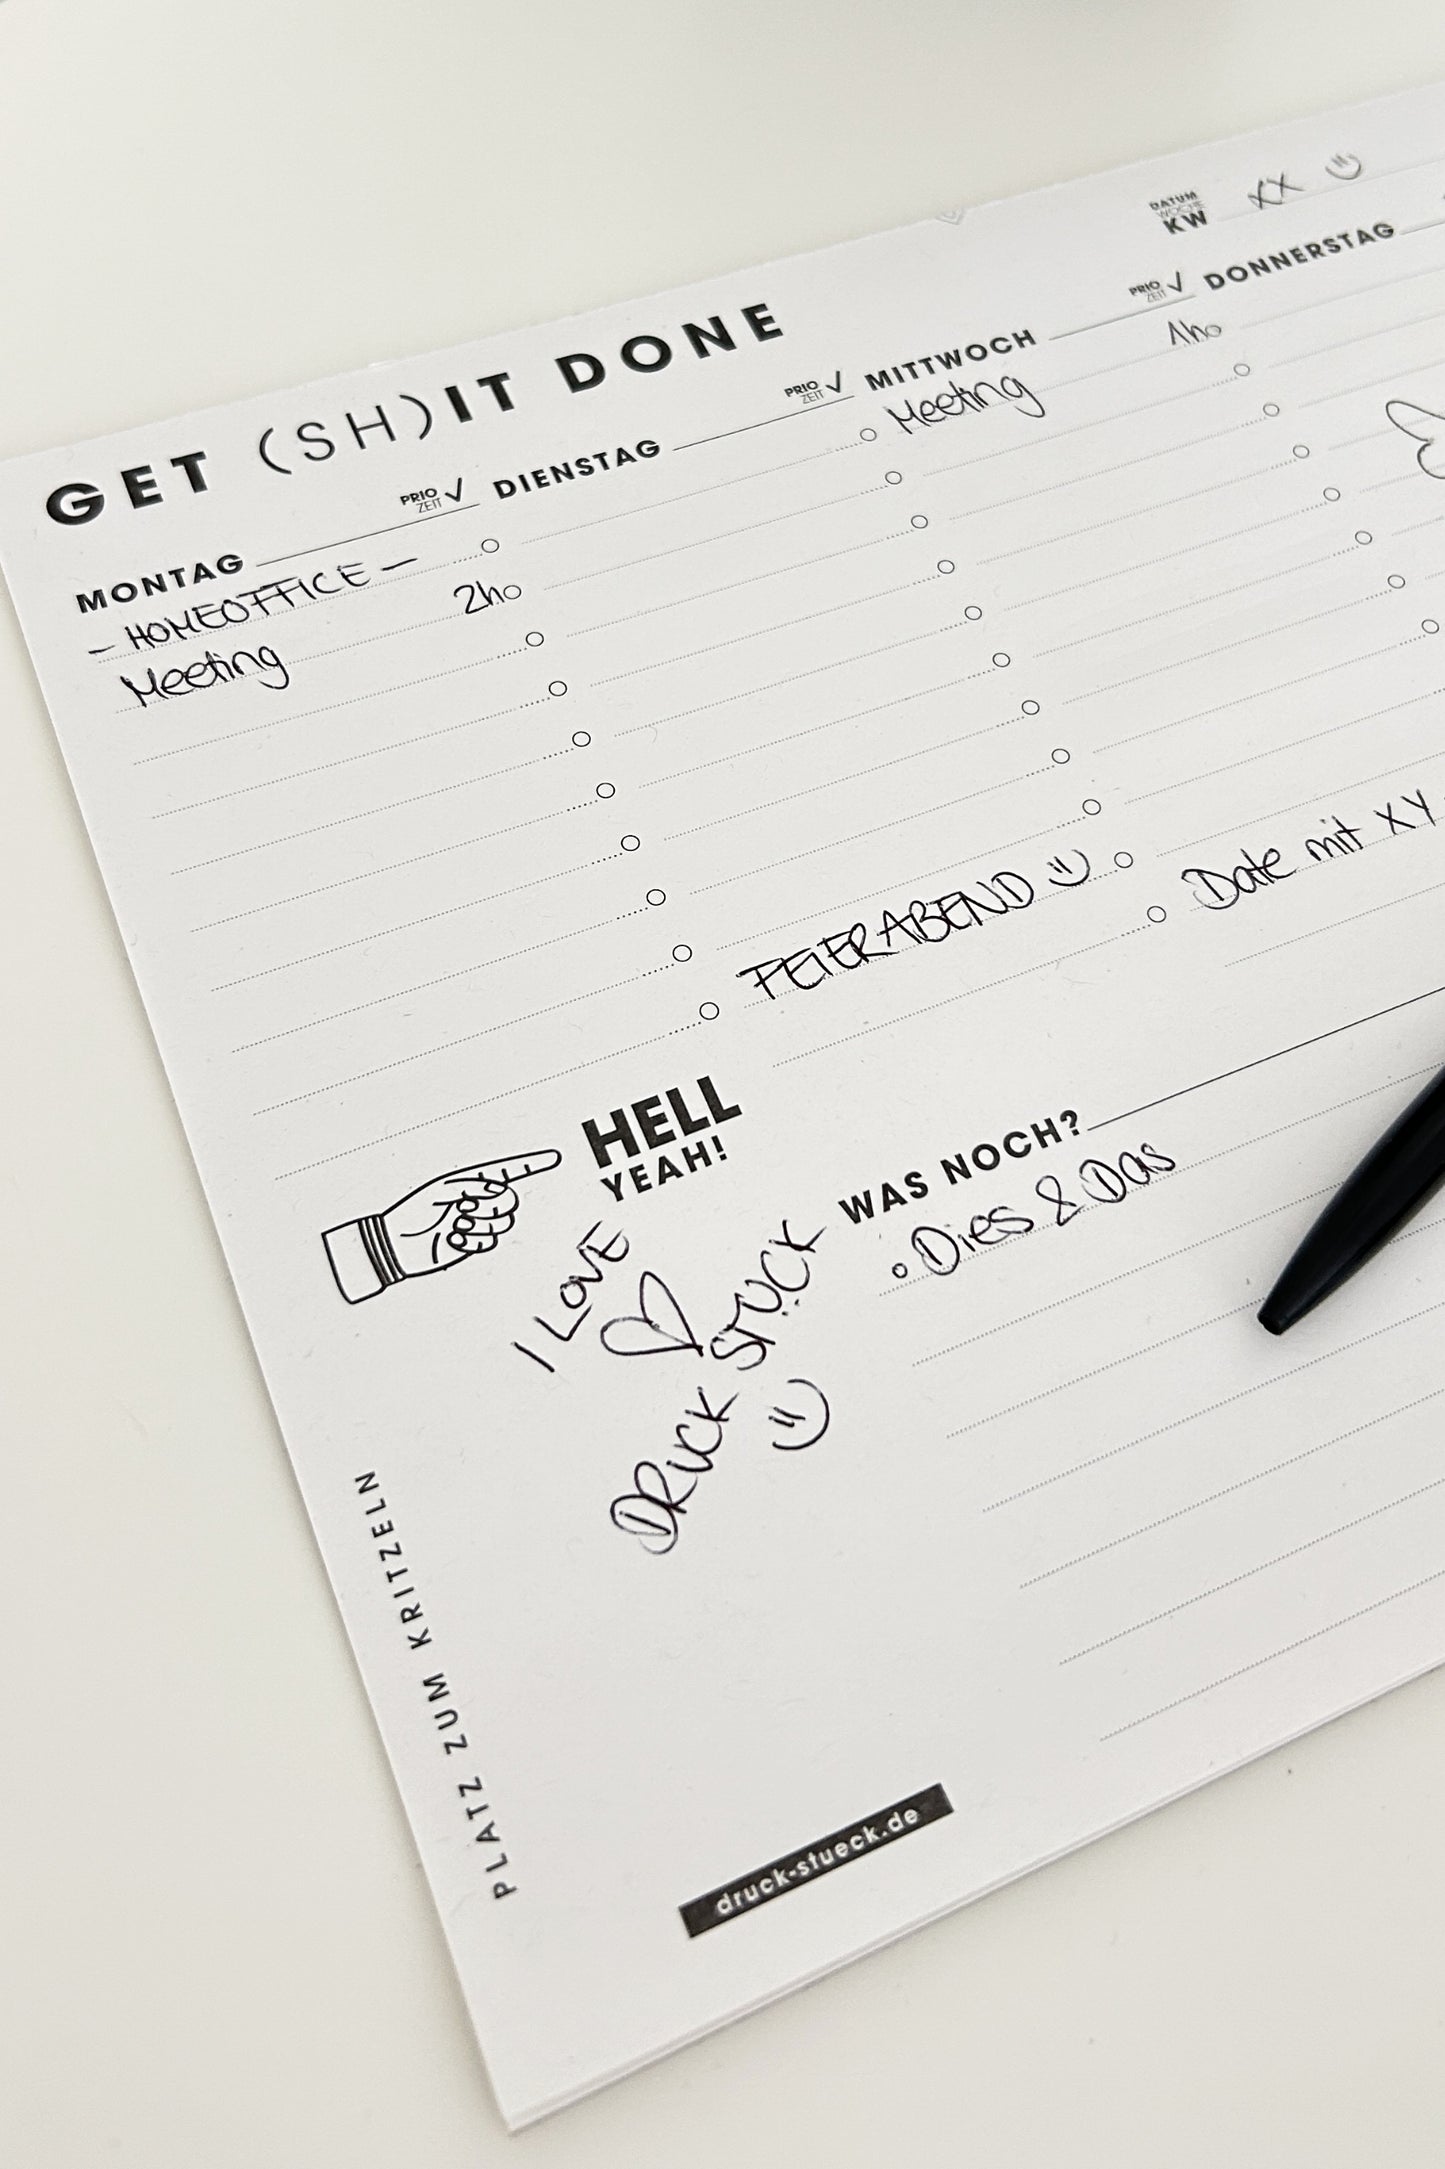 DATUM
WOCHE
KW XX
GET (SH)IT DONE
MONTAG PRIO ZEIT
- HOMEOFFICE -
Meeting 2h
DIENSTAG PRIO ZEIT
FEIERABEND
MITTWOCH PRIO ZEIT
Meeting 1h
DONNERSTAG
Date mit XY
HELL
YEAH!
I LOVE
DRUCK STÜCK
WAS NOCH?
Dies & Das
PLATZ ZUM KRITZELN
druck-stueck.de